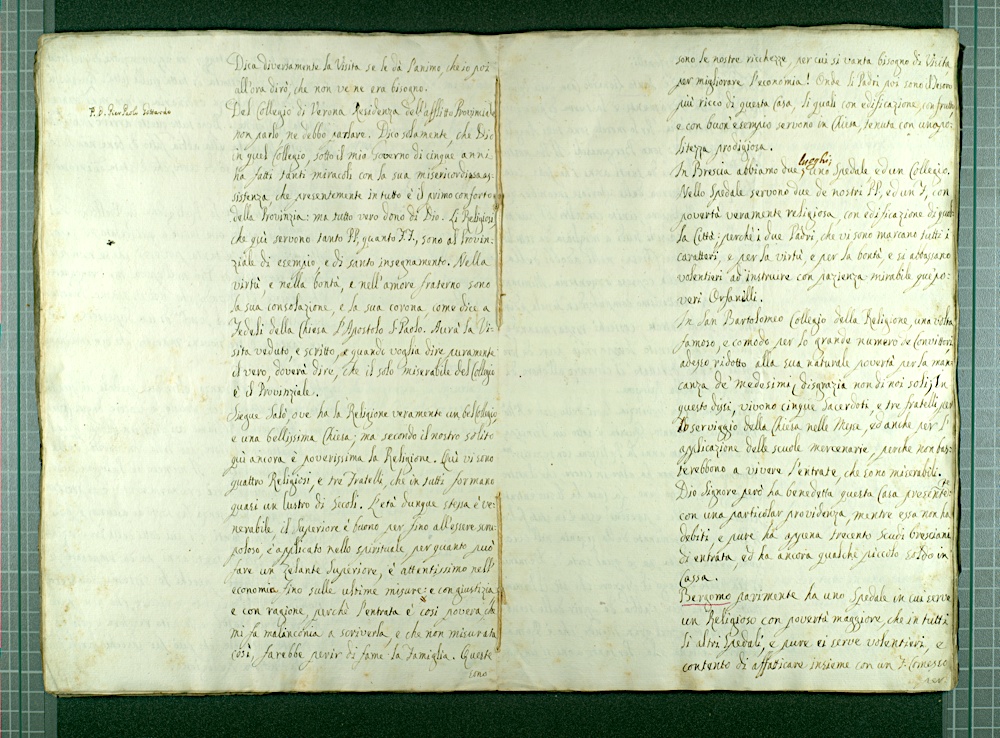 Dica diversamente la Visita se le dà l'animo, che io poi
all'ora dirò, che non ve ne era bisogno.
Del Collegio di Verona Residenza dell'afflitto Provinciale
non parlo, ne debbo parlare. Dico solamente, che Dio
in quel Collegio, sotto il mio Governo di cinque anni
ha fatti tanti miracoli con la sua misericordiosa as-
sistenza, che presentemente in tutto è il primo conforto
della Provinzia: ma tutto vero dono di Dio. Li Religiosi,
che quì servono tanto PP. quanto FF., sono al Provin-
ziale di esempio, e di santo insegnamento. Nella
virtù, e nella bontà, e nell'amore fraterno sono
la sua consolazione, e la sua corona, come dice a
Fedeli della Chiesa l'Apostolo S. Paolo. Aurà la Vi-
sita veduto, e scritto, e quando voglia dire puramente
il vero, doverà dire, che il solo miserabile del Collegio
è il Provinziale.
Siegue Salò, ove ha la Religione veramente un bel Collegio
e una bellissima Chiesa; ma secondo il nostro solito
quì ancora è poverissima la Religione. Quì vi sono
quattro Religiosi, e trè Fratelli, che in tutti formano
quasi un lustro di Secoli. L'età dunque stessa è ve-
nerabile, il Superiore è buono per fino all'essere scru-
poloso, è applicato nello spirituale per quanto può
fare un Zelante Superiore, è attentissimo nell'
economia fino sulle ultime misure: e con giustizia,
e con ragione, perchè l'entrata è così povera, che
mi fa malanconia a scriverla, e che non misurata
così, farebbe perir di fame la Famiglia. Queste
sono
sono le nostre ricchezze, per cui si vanta bisogno di Visita
per migliorare l'economia! Onde li Padri poi sono il Tesoro
più ricco di questa Casa, li quali con edificazione, con frutto,
e con buon esempio servono in Chiesa, tenuta con una po-
litezza prodigiosa.
In Brescia abbiamo due luoghi, uno Spedale, ed un Collegio.
Nello Spedale servono due de nostri PP. ed un F. con
povertà veramente religiosa, con edificazione di quel-
la Città: perchè i due Padri, che vi sono marcano tutti i
caratteri, e per la virtù, e per la bontà, e si abbassano
volentieri ad instruire con pazienza mirabile quei po-
veri Orfanelli.
In San Bartolomeo Collegio della Religione, una volta
famoso, e comodo per lo grande numero de Convittori,
adesso ridotto alla sua naturale povertà per la man-
canza de' medesimi, disgrazia non di noi soli, In
questo dissi, vivono cinque Sacerdoti, e tre fratelli per
lo serviggio della Chiesa nelle Messe, ed anche per l'
applicazione delle scuole mercenarie, perche non bas-
terebbono a vivere l'entrate, che sono miserabili.
Dio Signore però ha benedetta questa Casa presentemente
con una particolar providenza, mentre essa non ha
debiti, e pure ha appena trecento scudi bresciani
di entrata, ed ha ancora qualche piccolo soldo in
Cassa.
Bergomo parimente ha uno Spedale in cui serve
un Religioso con povertà maggiore, che in tutti
li altri Spedali, e pure ei serve volentieri, e
contento di affaticare insieme con un F. Comesso